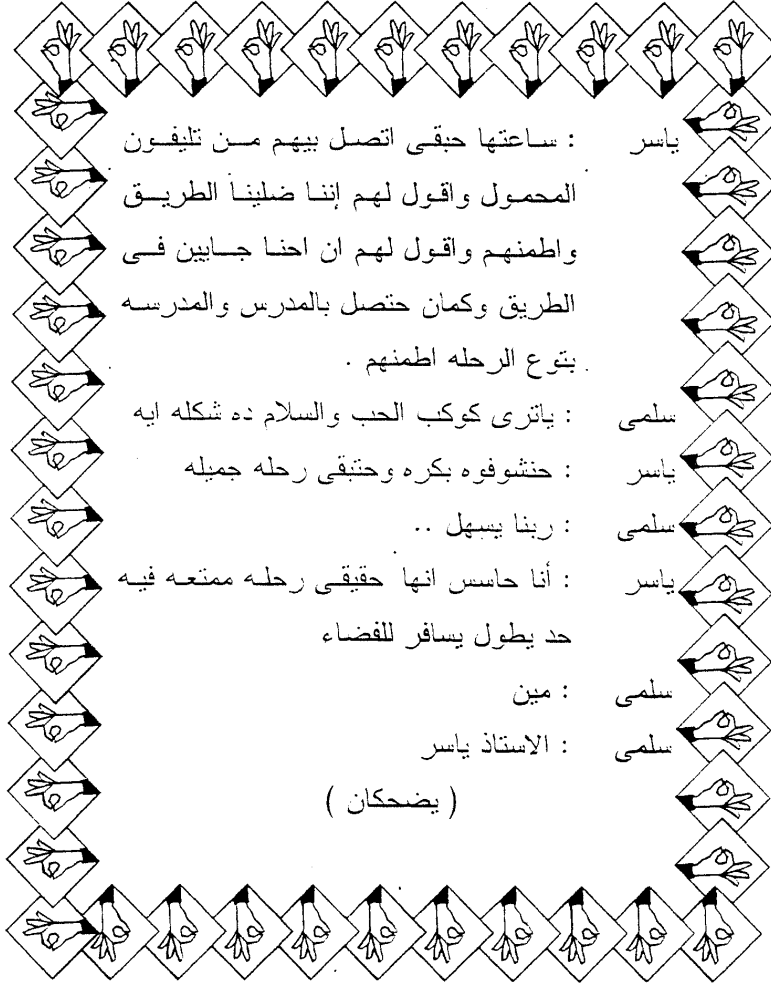 ياسر : ساعتها حبقى اتصل بيهم من تليفون
المحمول واقول لهم إننا ضلينا الطريق
واطمنهم واقول لهم ان احنا جايين فى
الطريق وكمان حتصل بالمدرس والمدرسه
بتوع الرحله اطمنهم .
سلمى : ياترى كوكب الحب والسلام ده شكله ايه
ياسر : حنشوفوه بكره وحتبقى رحله جميله
سلمى : ربنا يسهل ..
ياسر : أنا حاسس انها حقيقى رحله ممتعه فيه
حد يطول يسافر للفضاء
سلمى : مين
سلمى : الاستاذ ياسر
( يضحكان )